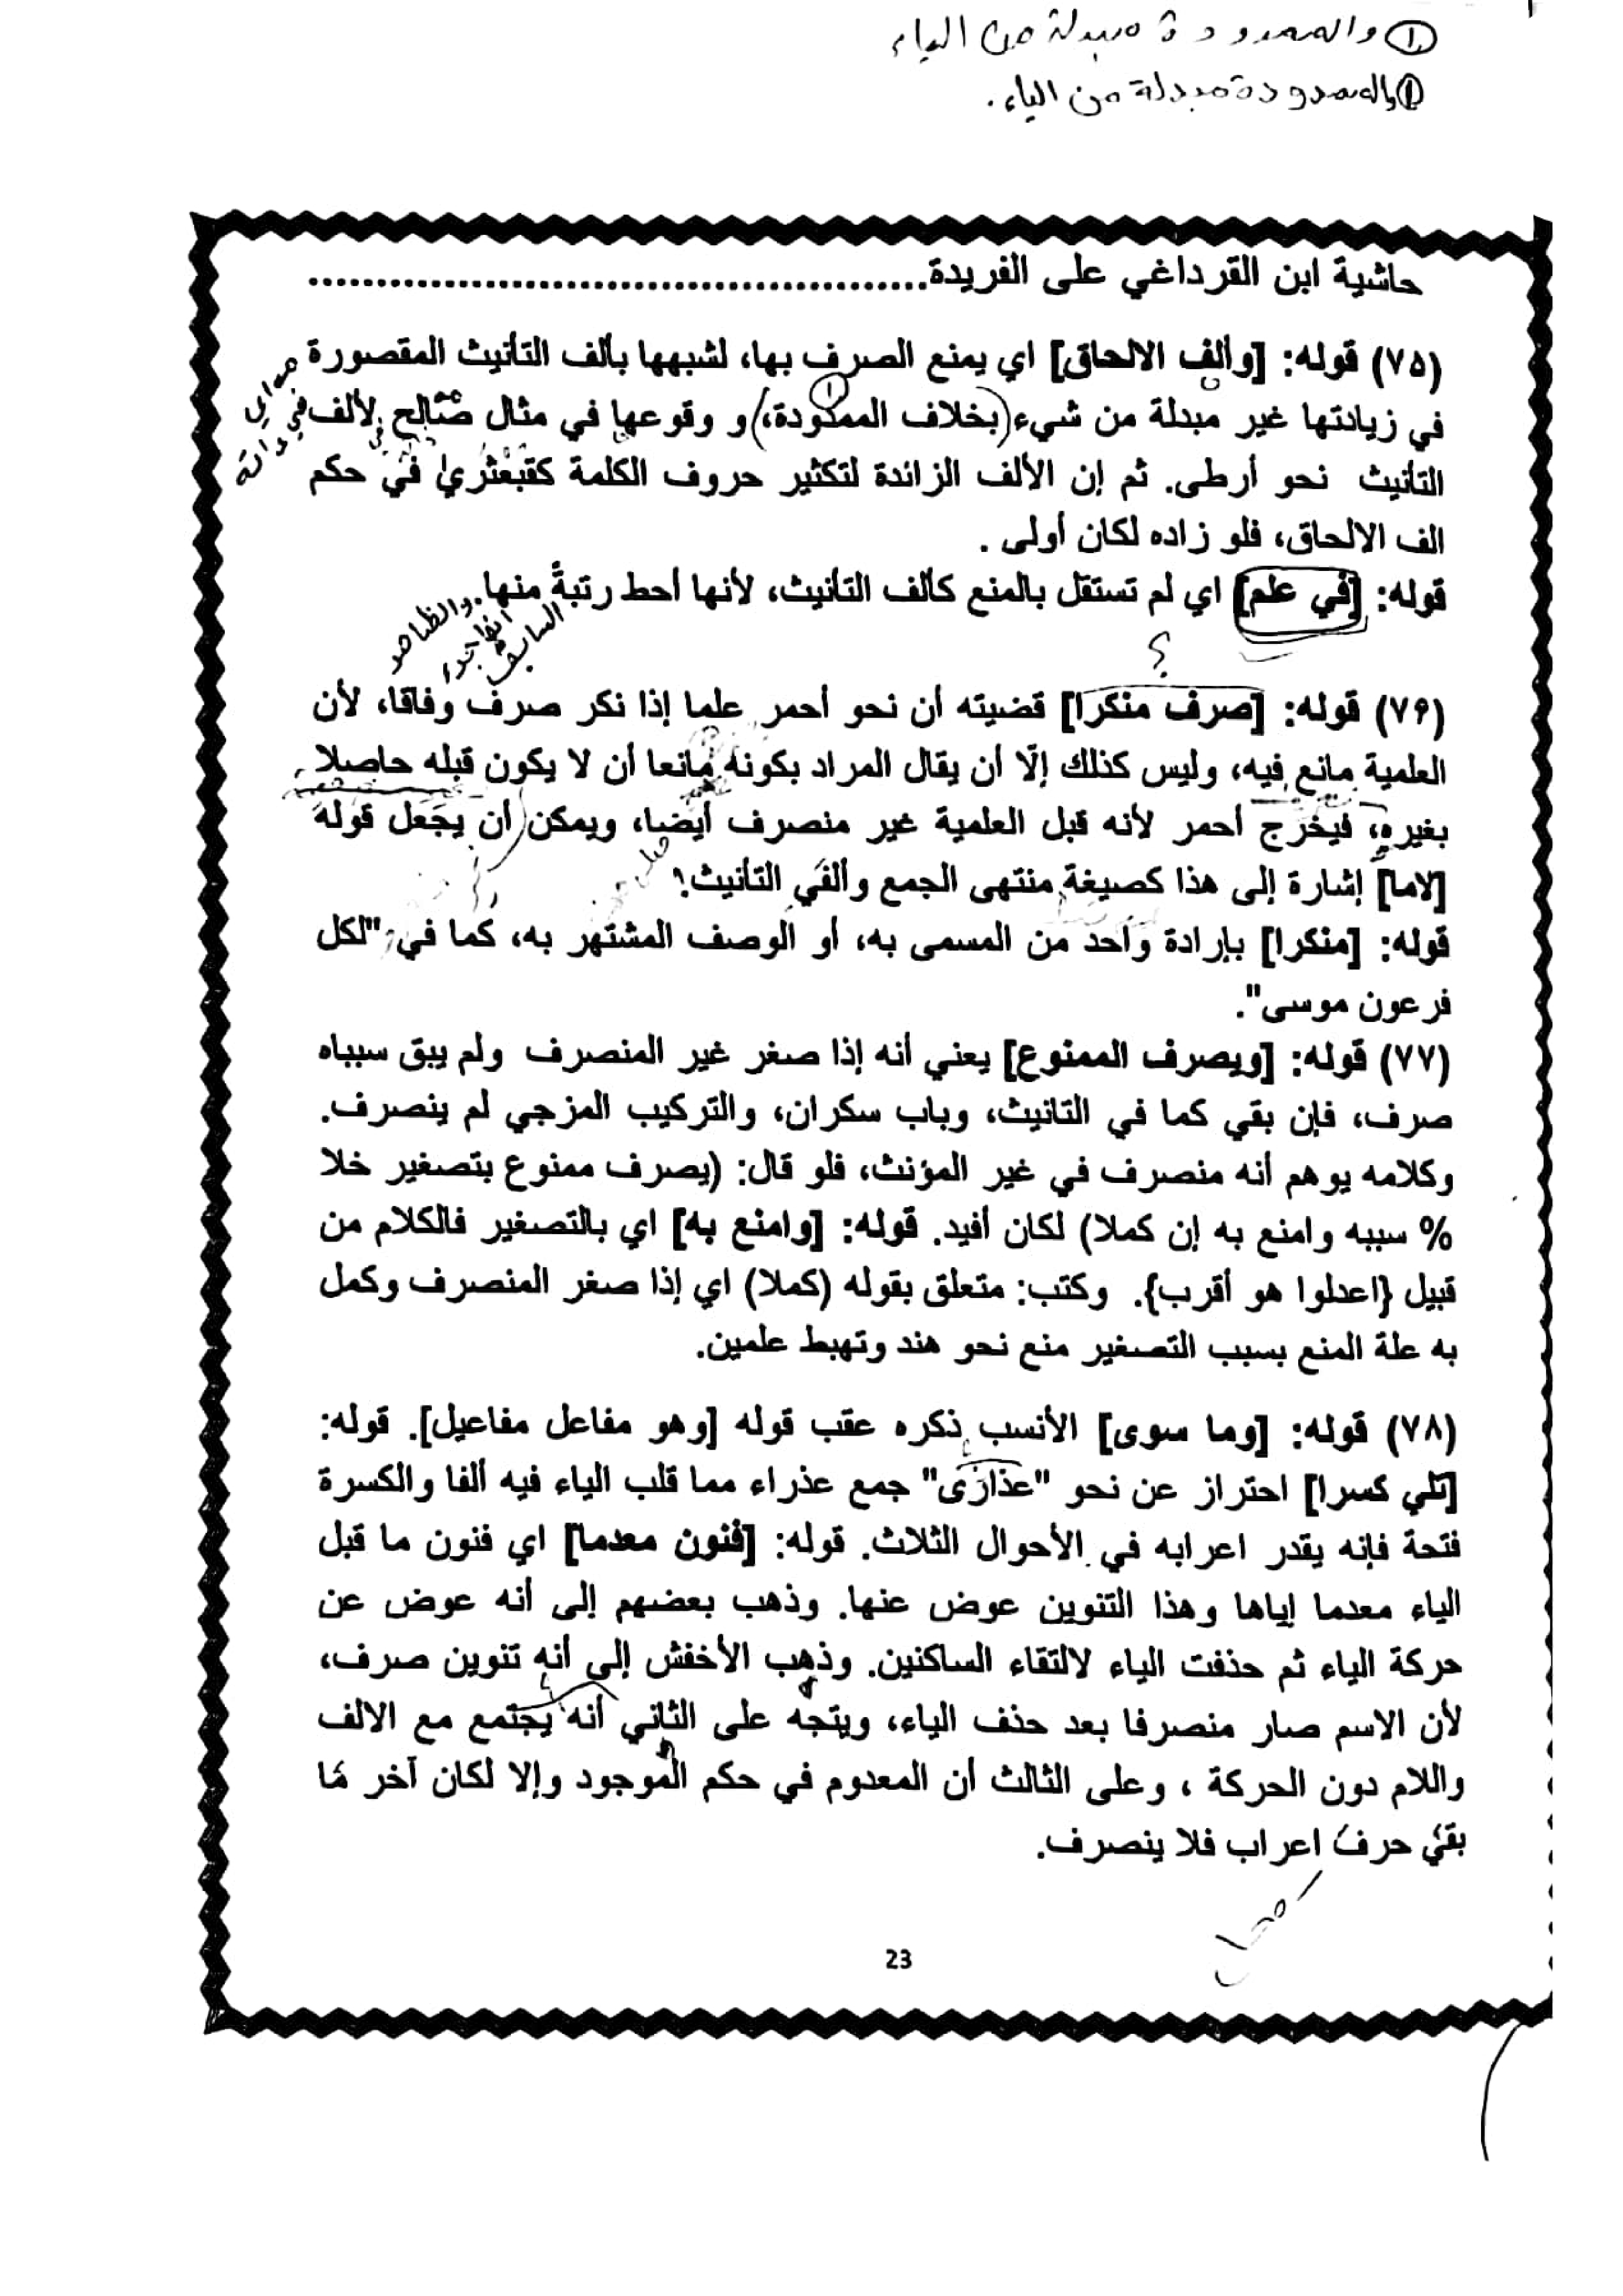 ① والممدودة مبدلة من الياء
① والممدودة مبدلة من الياء.
حاشية ابن القرداغي على الفريدة..............................................
(٧۵) قوله: [وألف الالحاق] اي يمنع الصرف بها، لشبهها بألف التأنيث المقصورة
في زيادتها غير مبدلة من شيء (بخلاف الممدودة،) و وقوعها في مثال صالح لألف
التأنيث نحو أرطى. ثم إن الألف الزائدة لتكثير حروف الكلمة كقبعثرى في حكم
الف الالحاق، فلو زاده لكان أولى .
قوله: [في علم] اي لم تستقل بالمنع كألف التأنيث، لأنها أحط رتبةً منها.
والظاهر
السابق
؟
(٧۶) قوله: [صرف منكرا] قضيته أن نحو أحمر علما إذا نكر صرف وفاقا، لأن
العلمية مانع فيه، وليس كذلك إلّا أن يقال المراد بكونه مانعا أن لا يكون قبله حاصلا
بغيره، فيخرج أحمر لأنه قبل العلمية غير منصرف أيضا، ويمكن أن يجعل قوله
[لاما] إشارة إلى هذا كصيغة منتهى الجمع وألفي التأنيث؟
قوله: [منكرا] بإرادة واحد من المسمى به، أو الوصف المشتهر به، كما في "لكل
فرعون موسى".
(٧٧) قوله: [ويصرف الممنوع] يعني أنه إذا صغر غير المنصرف ولم يبق سبباه
صرف، فإن بقي كما في التانيث، وباب سكران، والتركيب المزجي لم ينصرف.
وكلامه يوهم أنه منصرف في غير المؤنث، فلو قال: (يصرف ممنوع بتصغير خلا
% سببه وامنع به إن كملا) لكان أفيد. قوله: [وامنع به] اي بالتصغير فالكلام من
قبيل {اعدلوا هو أقرب}. وكتب: متعلق بقوله (كملا) اي إذا صغر المنصرف وكمل
به علة المنع بسبب التصغير منع نحو هند وتهبط علمين.
(٧٨) قوله: [وما سوى] الأنسب ذكره عقب قوله [وهو مفاعل مفاعيل]. قوله:
[تلي كسرا] احتراز عن نحو "عذارَى" جمع عذراء مما قلب الياء فيه ألفا والكسرة
فتحة فإنه يقدر اعرابه في الأحوال الثلاث. قوله: [فنون معدما] اي فنون ما قبل
الياء معدما إياها وهذا التنوين عوض عنها. وذهب بعضهم إلى أنه عوض عن
حركة الياء ثم حذفت الياء لالتقاء الساكنين. وذهب الأخفش إلى أنه تنوين صرف،
لأن الاسم صار منصرفا بعد حذف الياء، ويتجه على الثاني أنه يجتمع مع الالف
واللام دون الحركة ، وعلى الثالث أن المعدوم في حكم الموجود وإلا لكان آخر مَا
بقيَ حرفَ اعراب فلا ينصرف.
23